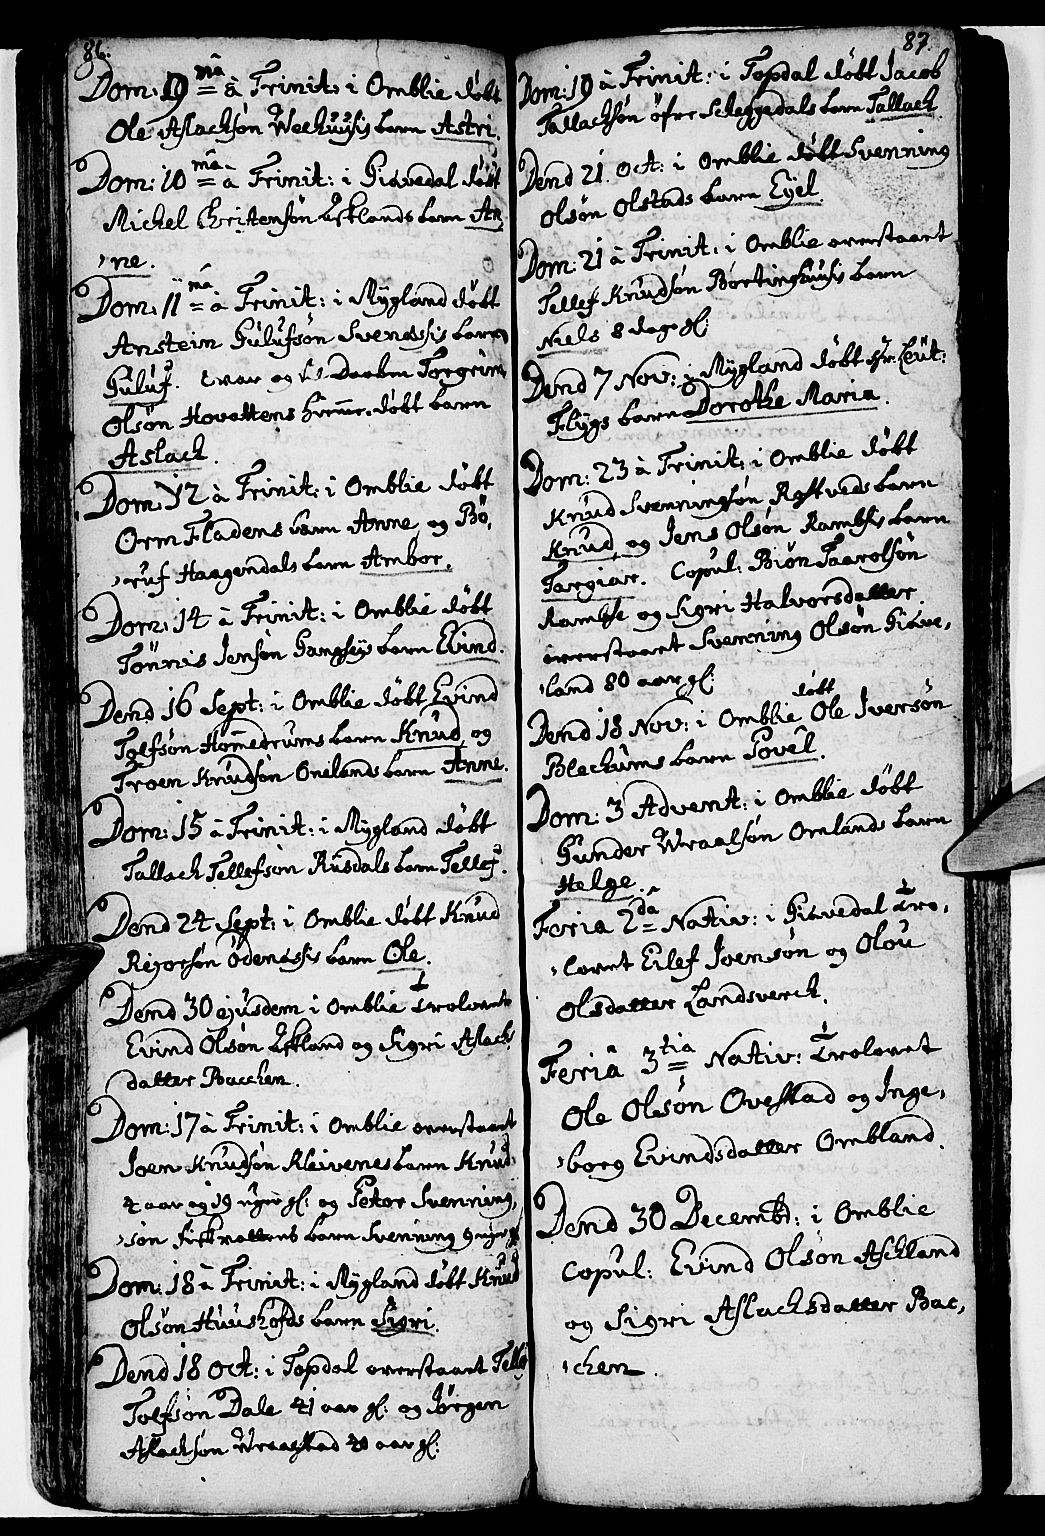 86.
Dom: 9 nâ à Trinit: i Omblie døbt
Ole Aslachsøn Weehuusis barn Astri.
Dom: 10 mâ à Trinit: i Giøvedal døbt
Michel Christensøn Esklands barn An,
,ne.
Dom: 11 mâ à Trinit: i Mygland døbt
Anstein Gulufsøn Svenassis barn
Guluf. var og Daaben Torgrim
Olsøn Hovattens hieme-døbt barn
Aslach.
Dom: 12 à Trinit: i Omblie døbt
Orm Fladens barn Anne og Bö,
,ruf Haagendals barn Ambor.
Dom: 14 à Trinit: i Omblie døbt
Tönnis Jensøn Gangsøys barn Evind.
Dend 16 Sept: i Omblie døbt Evind
Tolfsøn Hommedrums barn Knud og
Troen Knudsøn Onelands barn Anne.
Dom: 15 à Trinit: i Mygland døbt
Tallach Tellefsøn Rusdals barn Tellef.
Dend 24 Sept: i Omblie døbt Knud
Reiorsøn Ödenæssis barn Ole.
Dend 30 ejusdem i Omblie Trolovet
Evind Olsøn Eskland og Sigri Aslachs
datter Bacchen.
Dom: 17 à Trinit: i Omblie overstaaet
Joen Knudsøn Kleivenes barn Knud
4 aar og 19 uger gl: og Peter Svenning,
,søn Fiskvattens barn Svenning 9 uger gl
Dom: 18 à Trinit: i Mygland døbt Knud
Olsøn Huushofds barn Sigri.
Dend 18 Oct: i Topdal overstaaet Tellef
Tolfsøn Dale 41 aar gl: og Jørgen
Aslachsøn Wraastad 40 aar gl:
87.
Dom: 19 à Trinit: i Topdal døbt Jacob
Tallachsøn öfre Scheggedals barn Tallach.
Dend 21. Oct: i Omblie døbt Svenning
Olsøn Olstads barn Eyel.
Dom: 21 à Trinit: i Omblie overstaaet
Tellef Knudsøn Børtinghuusis barn
Niels 8 dage gl:
Dend 7 Nov: i Mygland døbt Hr: Leut:
Flygs barn Dorothe Maria.
Dom: 23 à Trinit: i Omblie døbt
Knud Svenningsøn Røstveds barn
Knud og Jens Olsøn Ramsis barn
Targiær. Copul: Biøn Taarolsøn
Ramse og Sigri Halvorsdatter
overstaaet Svenning Olsøn Giøve,
,land 80 aar gl:
Dend 18 Nov: i Omblie døbt Ole Iversøn
Blechums barn Povel.
Dom: 3 Advent: i Omblie døbt
Gunder Wraalsøn Omlands barn
Helge.
Feria 2dâ Nativ: i Giøvedal Tro,
,lovet Eilef Joensøn og Olou
Olsdatter Landsverck.
Feriâ 3tia Nativ: Trolovet
Ole Olsøn Ovestad og Inge,
,borg Evindsdatter Ombland.
Dend 30 Decembr: i Omblie
Copul: Evind Olsøn Aschland
og Sigri Aslachsdatter Bac,
,chen.